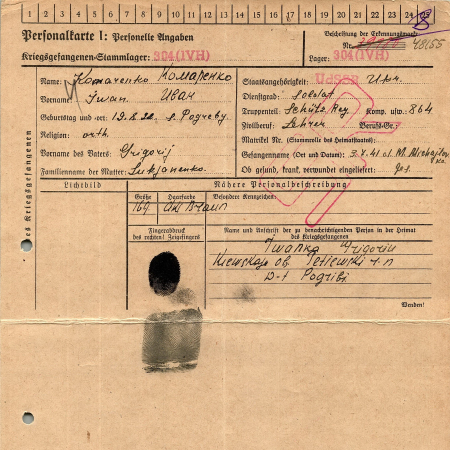 1 2 3 4 5 6 7 8 9 10 11 12 13 14 15 16 17 18 19 20 21 22 23 24 25
Personalkarte I: Personelle Angaben
Beschriftung der Erkennungsmarke
Nr. 48155
Kriegsgefangenen-Stammlager: 304 (IV H)
Lager: 304 (IV H)
des Kriegsgefangenen
Name: Komarenko Комаренко
Staatsangehörigkeit: Ukr.
Vorname: Iwan Иван
Dienstgrad: Soldat
Truppenteil: Schütz. Reg. Komp. usw.: 864
Geburtstag und -ort: S. Pogreby
Zivilberuf: Lehrer Berufs-Gr.
Religion: orth.
Matrikel Nr. (Stammrolle des Heimatstaates):
Vorname des Vaters: Grigorij
Gefangennahme (Ort und Datum):
Familienname der Mutter: Lukjanenko.
Ob gesund, krank, verwundet eingeliefert: ges.
Lichtbild
Nähere Personalbeschreibung
Größe
Haarfarbe
Besondere Kennzeichen:
169
Braun
Fingerabdruck
des rechten! Zeigefingers
Name und Anschrift der zu benachrichtigenden Person in der Heimat
des Kriegsgefangenen
Kiewskaja ob.
Wenden!